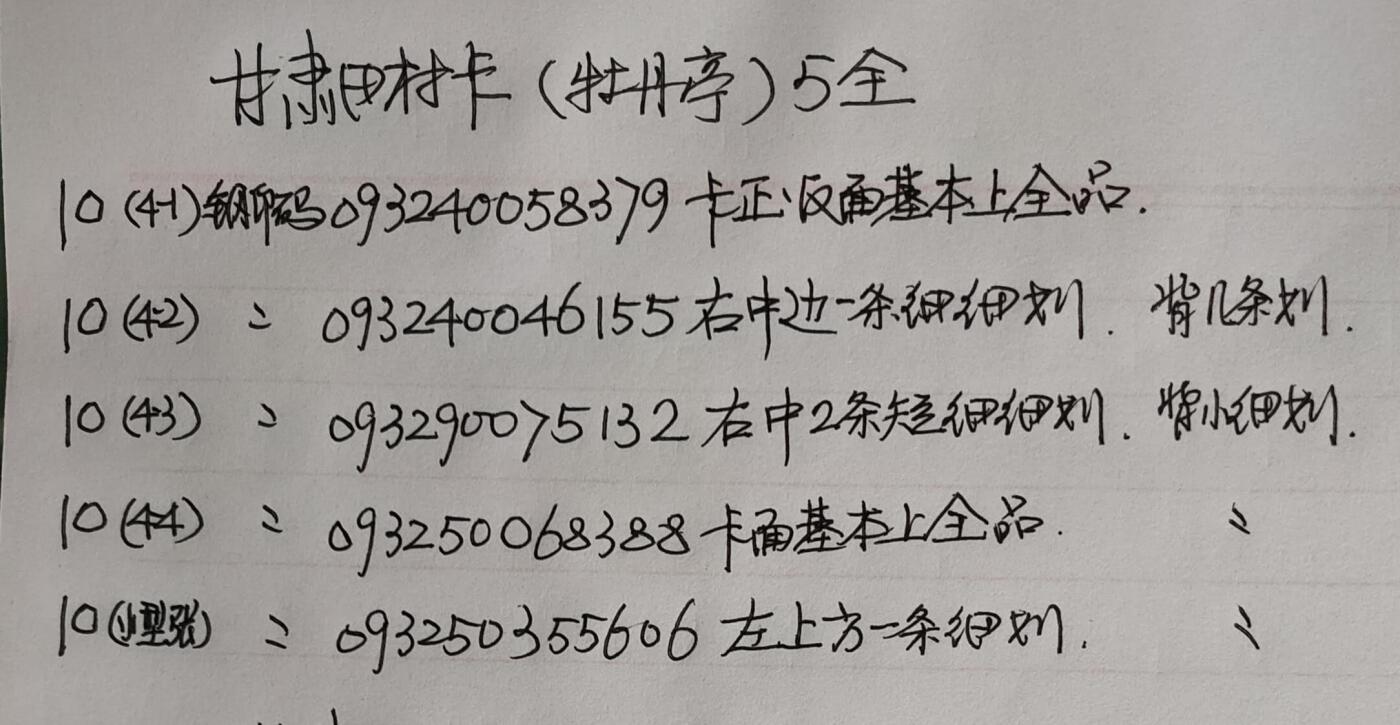 甘肃田村卡（牡丹亭）5全
10（4-1）钢印码093240058379卡正、反面基本上全品.
10（4-2）〃093240046155右中边一条细细划.背几条划.
10（4-3）〃093290075132右中2条短细细划.背小细划.
10（4-4）〃093250068388卡面基本上全品.〃
10（小型张）〃093250355606左上方一条细划.〃